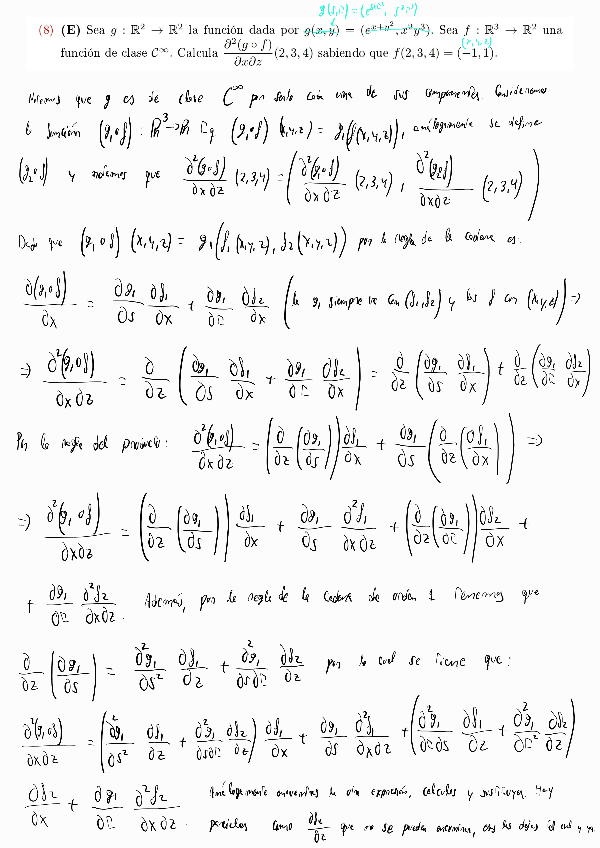 g(s,t) = (e^{s+t²}, s³t³)
(8) (E) Sea g : ℝ² → ℝ² la función dada por g(x, y) = (e^{x+y²}, x³y³). Sea f : ℝ³ → ℝ² una
función de clase C^∞. Calcula ∂²(g ∘ f)/∂x∂z (2, 3, 4) sabiendo que f(2, 3, 4) = (−1, 1).
que g es de clase C^∞ por serlo cada una de sus componentes. Consideramos
la función (g₁∘f) : ℝ³→ℝ (g₁∘f)(x,y,z) = g₁(f(x,y,z)), análogamente se define
(g₂∘f) y que ∂²(g∘f)/∂x∂z (2,3,4) = (∂²(g₁∘f)/∂x∂z (2,3,4), ∂²(g₂∘f)/∂x∂z (2,3,4))
Dado que (g₁∘f)(x,y,z) = g₁(f₁(x,y,z), f₂(x,y,z)) por la regla de la cadena es:
∂(g₁∘f)/∂x = ∂g₁/∂s ∂f₁/∂x + ∂g₁/∂t ∂f₂/∂x (la g₁ siempre va con (f₁,f₂) y las f con (x,y,z)) ⇒
⇒ ∂²(g₁∘f)/∂x∂z = ∂/∂z (∂g₁/∂s ∂f₁/∂x + ∂g₁/∂t ∂f₂/∂x) = ∂/∂z (∂g₁/∂s ∂f₁/∂x) + ∂/∂z (∂g₁/∂t ∂f₂/∂x)
Por la regla del producto: ∂²(g₁∘f)/∂x∂z = (∂/∂z (∂g₁/∂s)) ∂f₁/∂x + ∂g₁/∂s (∂/∂z (∂f₁/∂x)) ⇒
⇒ ∂²(g₁∘f)/∂x∂z = (∂/∂z (∂g₁/∂s)) ∂f₁/∂x + ∂g₁/∂s ∂²f₁/∂x∂z + (∂/∂z (∂g₁/∂t)) ∂f₂/∂x +
+ ∂g₁/∂t ∂²f₂/∂x∂z. Además, por la regla de la cadena de orden 1 tenemos que
∂/∂z (∂g₁/∂s) = ∂²g₁/∂s² ∂f₁/∂z + ∂²g₁/∂s∂t ∂f₂/∂z por lo cual se tiene que:
∂²(g₁∘f)/∂x∂z = (∂²g₁/∂s² ∂f₁/∂z + ∂²g₁/∂s∂t ∂f₂/∂z) ∂f₁/∂x + ∂g₁/∂s ∂²f₁/∂x∂z + (∂²g₁/∂t∂s ∂f₁/∂z + ∂²g₁/∂t² ∂f₂/∂z)
∂f₂/∂x + ∂g₁/∂t ∂²f₂/∂x∂z. Análogamente encuentras la otra expresión, calculas y sustituyes. Hay
parciales como ∂f₂/∂z que no se pueden encontrar, las dejas tal cual y ya.